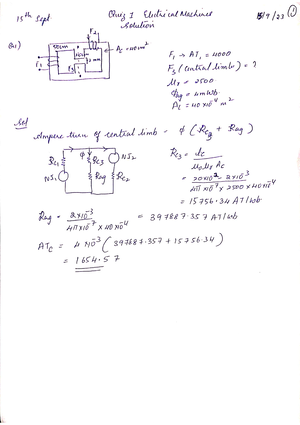 15th Sept.
Quiz 1 Electrical Machines
Solution
15/9/23 1
Q1)
F2
50cm
Ac = 40cm²
F1
2mm
F3
F1 → AT1 = 4000
F3 (central limb) = ?
μr = 2500
φag = 4mWb
Ac = 40×10⁻⁴ m²
Sol
Ampere turn of central limb = φ (Rc3 + Rag)
Rc1
φ
Rc3
NI2
NI1
Rag
Rc2
Rc3 = lc
μ0μr Ac
= 20×10⁻² - 2×10⁻³
4π×10⁻⁷ × 2500 × 40×10⁻⁴
= 15756.34 AT/Wb
Rag = 2×10⁻³ = 397887.357 AT/Wb
4π×10⁻⁷ × 40×10⁻⁴
ATc = 4×10⁻³ (397887.357 + 15756.34)
= 1654.57